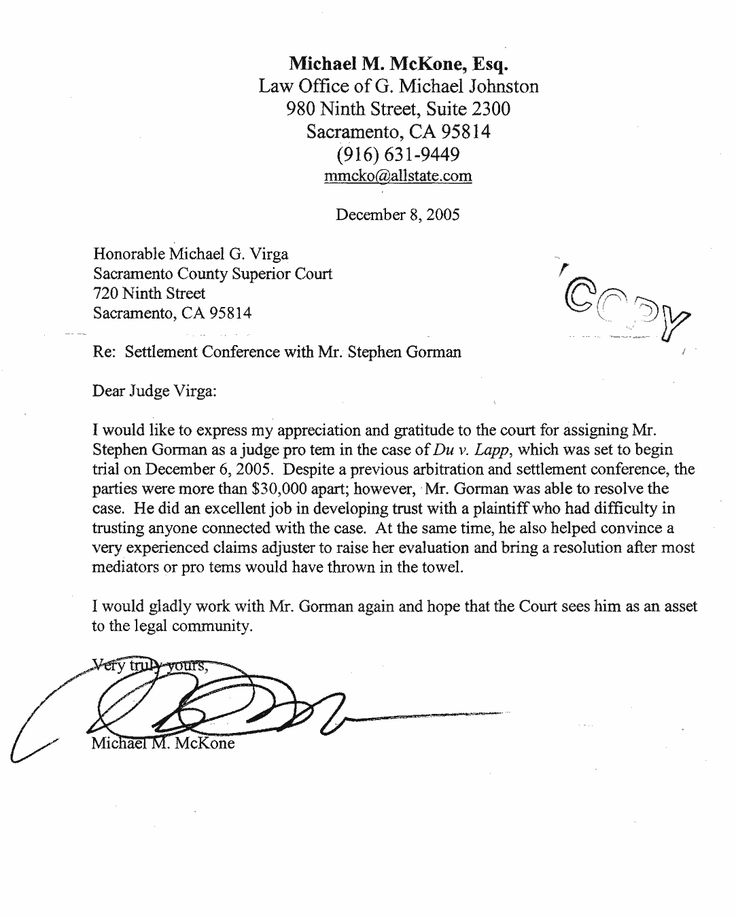 Michael M. McKone, Esq.
Law Office of G. Michael Johnston
980 Ninth Street, Suite 2300
Sacramento, CA 95814
(916) 631-9449
mmcko@allstate.com
December 8, 2005
Honorable Michael G. Virga
Sacramento County Superior Court
720 Ninth Street
Sacramento, CA 95814
COPY
Re: Settlement Conference with Mr. Stephen Gorman
Dear Judge Virga:
I would like to express my appreciation and gratitude to the court for assigning Mr.
Stephen Gorman as a judge pro tem in the case of Du v. Lapp, which was set to begin
trial on December 6, 2005. Despite a previous arbitration and settlement conference, the
parties were more than $30,000 apart; however, Mr. Gorman was able to resolve the
case. He did an excellent job in developing trust with a plaintiff who had difficulty in
trusting anyone connected with the case. At the same time, he also helped convince a
very experienced claims adjuster to raise her evaluation and bring a resolution after most
mediators or pro tems would have thrown in the towel.
I would gladly work with Mr. Gorman again and hope that the Court sees him as an asset
to the legal community.
Very truly yours,
Michael M. McKone